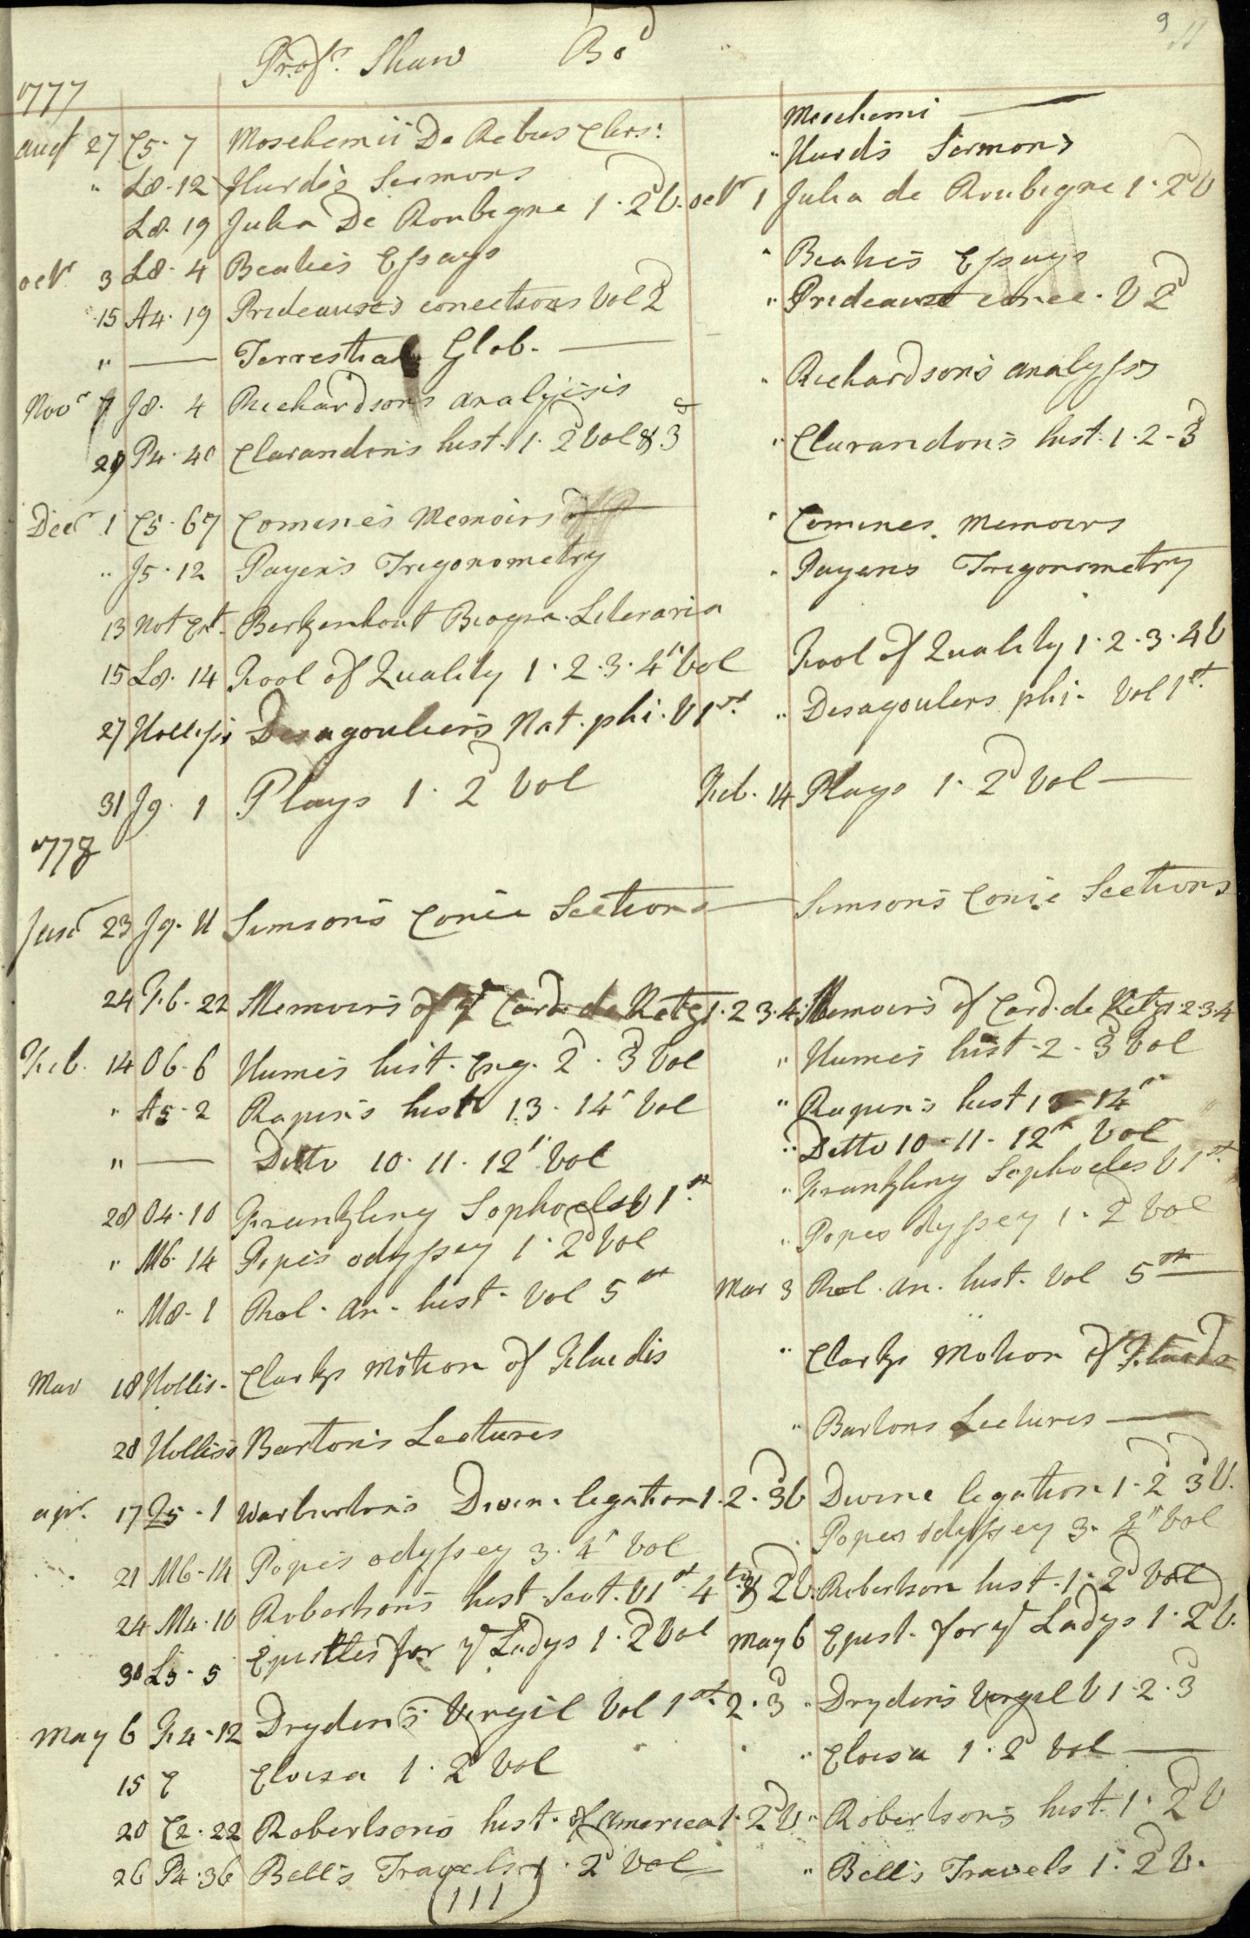 9 11
Prof.r Shaw Bod
1777
Moschemi
Augt 27 C5-7 Moschemii De Rebus Chrs: " Hurds Sermons
" L8-12 Hurd's Sermons
L8-19 Julia De Roubigne 1. 2d V. octr 1 Julia de Roubigne 1. 2d V
octr 3 L8-4 Beatie's Essays " Beatie's Essays
15 A4-19 Prideaux's conections Vol 2d " Prideaux conec. V 2d
" — Terrestrial Glob. —
Novr 7 J8. 4 Richardson's analysis " Richardson's analysis
29 P4-40 Clarandon's hist. 1. 2d Vol & 3d " Clarandon's hist. 1. 2. 3d
Decr 1 C5-67 Comene's Memoirs " Comines Memoirs
" J5-12 Payen's Trigonometry " Payens Trigonometry
13 Not Ent. Berkenhout Biogra. Literaria
15 L8. 14 Fool of Quality 1. 2. 3. 4th Vol Fool of Quality 1. 2. 3. 4 V
27 Hollis's Desagoulier's Nat. phi. V 1st. " Desagoulers phi. Vol 1st.
31 J9. 1 Plays 1. 2d Vol Feb. 14 Plays 1. 2d Vol —
1778
Jany 23 J9. 11 Simson's Conic Sections Simson's Conic Sections
24 F6-22 Memoirs of ye Card. de Retz 1. 2. 3. 4. Memoirs of Card. de Retz 1 2 3. 4
Feb. 14 O6-6 Hume's hist. Eng. 2d. 3d Vol " Hume's hist. 2. 3d Vol
" A5-2 Rapin's hist 13. 14th Vol " Rapin's hist 13 14th
" — Ditto 10. 11. 12th Vol " Ditto 10-11-12th Vol
28 O4-10 Frankling Sophocles V 1st " Frankling Sophocles V 1st
" M6-14 Pope's odyssey 1. 2d Vol " Popes odyssey 1. 2d Vol
" M8-1 Rol. an. hist. Vol 5th Mar 3 Rol. an. hist. Vol 5th
Mar 18 Hollis- Clarks Motion of Fluedis " Clarks Motion of Fluids
28 Hollis's Barton's Lectures " Bartons Lectures —
apr. 17 Q5-1 Warburton's Divin. legation 1. 2. 3d V Divine legation 1. 2d 3d V.
21 M6-14 Pope's odyssey 3. 4th Vol Popes odyssey 3. 4th Vol
24 M4-10 Robertson's hist. Scot. V 1st. 4to & 2d V. Robertson hist. 1. 2d Vol
30 L5-5 Epistles for ye Ladys 1. 2d Vol May 6 Epist. for ye Ladys 1. 2d V.
May 6 F4-12 Dryden's Vergil Vol 1st. 2. 3d " Dryden's Vergil V 1. 2. 3d
15 E Eloisa 1. 2d Vol " Eloisa 1. 2d Vol —
20 C2-22 Robertson's hist. of America 1. 2d V. " Robertson's hist. 1. 2d V
26 P4-36 Bell's Travels 1. 2d Vol " Bell's Travels 1. 2d V.
(111)